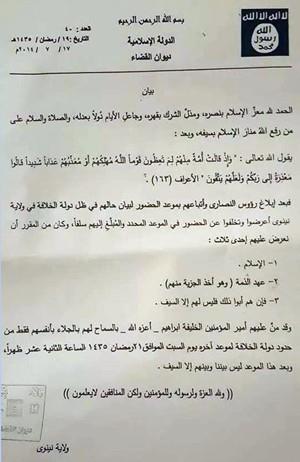 لا اله الا الله
الله
رسول
محمد
بسم الله الرحمن الرحيم
الدولة الإسلامية
ديوان القضاء
العدد : ٤٠
التاريخ : ١٩/ رمضان / ١٤٣٥هـ
١٧ / ٧ / ٢٠١٤م
بيان
الحمد لله معزِّ الإسلام بنصره، ومذلِّ الشرك بقهره، وجاعلِ الأيام دُولاً بعدله، والصلاة والسلام على
من رفع اللهُ منارَ الإسلام بسيفه وبعد :
يقول الله تعالى : " وَإِذْ قَالَتْ أُمَّةٌ مِنْهُمْ لِمَ تَعِظُونَ قَوْماً اللَّهُ مُهْلِكُهُمْ أَوْ مُعَذِّبُهُمْ عَذَاباً شَدِيداً قَالُوا
مَعْذِرَةً إِلَى رَبِّكُمْ وَلَعَلَّهُمْ يَتَّقُونَ " الأعراف (١٦٣) .
فبعد إبلاغ رؤوس النصارى وأتباعهم بموعد الحضور لبيان حالهم في ظل دولة الخلافة في ولاية
نينوى أعرضوا وتخلفوا عن الحضور في الموعد المحدد والمُبلَّغ إليهم سلفاً، وكان من المقرر أن
نعرض عليهم إحدى ثلاث :
١- الإسلام .
٢- عهد الذمة ( وهو أخذ الجزية منهم) .
٣- فإن هم أبوا ذلك فليس لهم إلا السيف .
وقد منَّ عليهم أمير المؤمنين الخليفة ابراهيم _ أعزه الله _ بالسماح لهم بالجلاء بأنفسهم فقط من
حدود دولة الخلافة لموعد آخره يوم السبت الموافق٢١رمضان ١٤٣٥ الساعة الثانية عشر ظهراً،
وبعد هذا الموعد ليس بيننا وبينهم إلا السيف .
(( ولله العزة ولرسوله وللمؤمنين ولكن المنافقين لايعلمون ))
ولاية نينوى